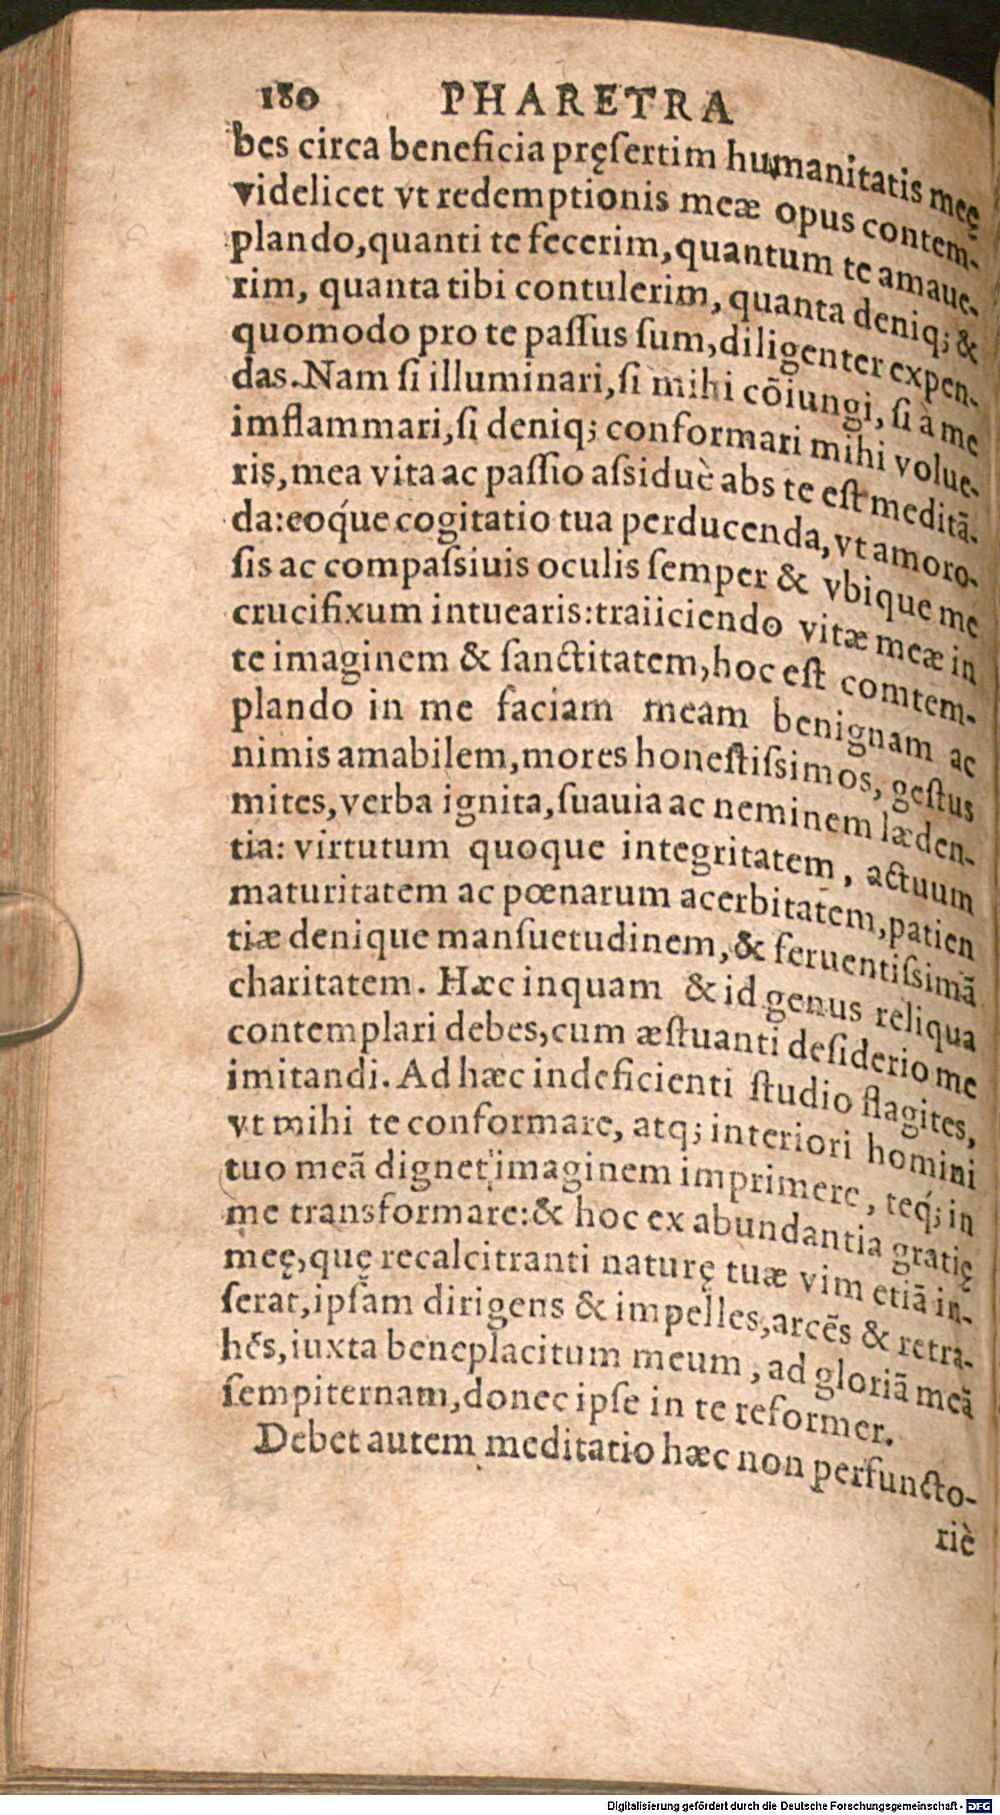 180 PHARETRA
bes circa beneficia pręſertim humanitatis meę
videlicet vt redemptionis meæ opus contem-
plando, quanti te fecerim, quantum te amaue-
rim, quanta tibi contulerim, quanta deniq; &
quomodo pro te paſſus ſum, diligenter expen-
das. Nam ſi illuminari, ſi mihi cõiungi, ſi à me
imflammari, ſi deniq; conformari mihi volue-
ris, mea vita ac paſſio aſsiduè abs te eſt meditã-
da: eoq́ue cogitatio tua perducenda, vt amoro-
ſis ac compaſsiuis oculis ſemper & vbique me
crucifixum intuearis: traiiciendo vitæ meæ in
te imaginem & ſanctitatem, hoc eſt comtem-
plando in me faciam meam benignam ac
nimis amabilem, mores honeſtiſsimos, geſtus
mites, verba ignita, ſuauia ac neminem læden-
tia: virtutum quoque integritatem, actuum
maturitatem ac pœnarum acerbitatem, patien
tiæ denique manſuetudinem, & feruentiſsimã
charitatem. Hæc inquam & id genus reliqua
contemplari debes, cum æſtuanti deſiderio me
imitandi. Ad hæc indeficienti ſtudio flagites,
vt mihi te conformare, atq; interiori homini
tuo meã dignet' imaginem imprimere, teq́; in
me transformare: & hoc ex abundantia gratię
meę, quę recalcitranti naturę tuæ vim etiã in-
ferat, ipſam dirigens & impelles, arcẽs & retra-
hẽs, iuxta beneplacitum meum, ad gloriã meã
ſempiternam, donec ipſe in te reformer.
Debet autem meditatio hæc non perfuncto-
riè
Digitalisierung gefördert durch die Deutsche Forschungsgemeinschaft - DFG